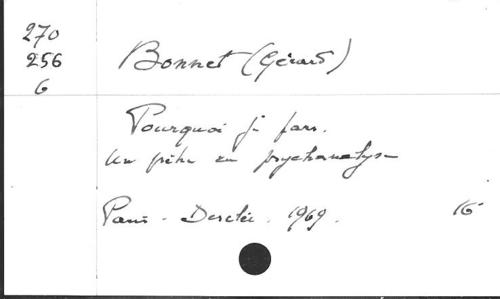 270
256
6
Bonnet (Gérard)
Pourquoi je pars.
Un prêtre en psychanalyse
Paris - Desclée. 1969. 16°